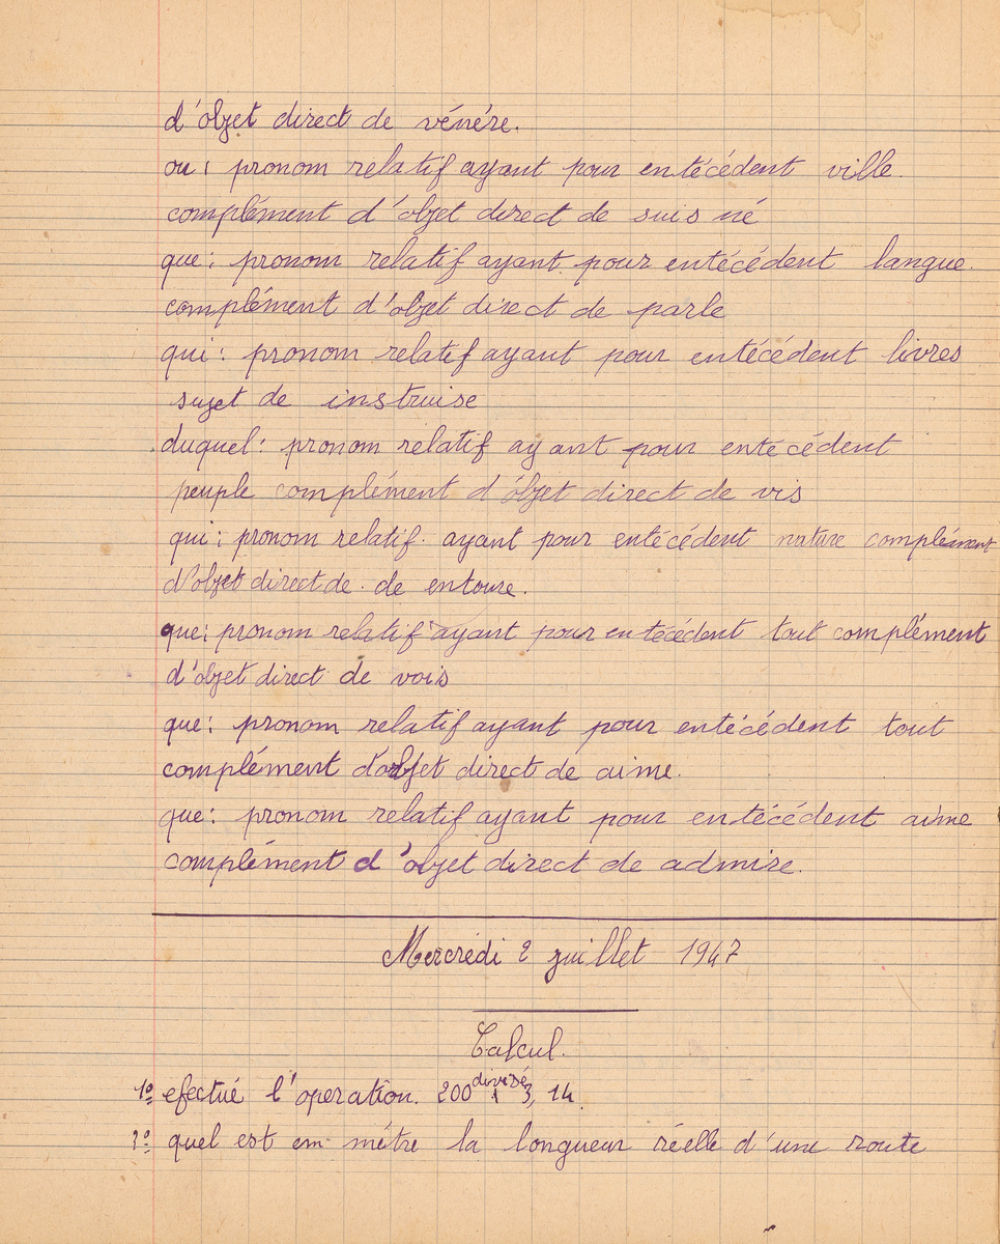 d'objet direct de vénére.
ou : pronom relatif ayant pour entécédent ville.
complément d'objet direct de suis né
que : pronom relatif ayant pour entécédent langue.
complément d'objet direct de parle
qui : pronom relatif ayant pour entécédent livres
sujet de instruise
duquel : pronom relatif ayant pour entécédent
peuple complément d'objet direct de vis
qui : pronom relatif. ayant pour entécédent nature complément
d'objet direct de. de entoure.
que : pronom relatif ayant pour entécédent tout complément
d'objet direct de vois
que : pronom relatif ayant pour entécédent tout
complément d'objet direct de aime.
que : pronom relatif ayant pour entécédent aime
complément d'objet direct de admire.
Mercredi 2 juillet 1947
Calcul.
1º efectué l'operation. 200 divisé : 3,14
2º quel est em métre la longueur réelle d'une route